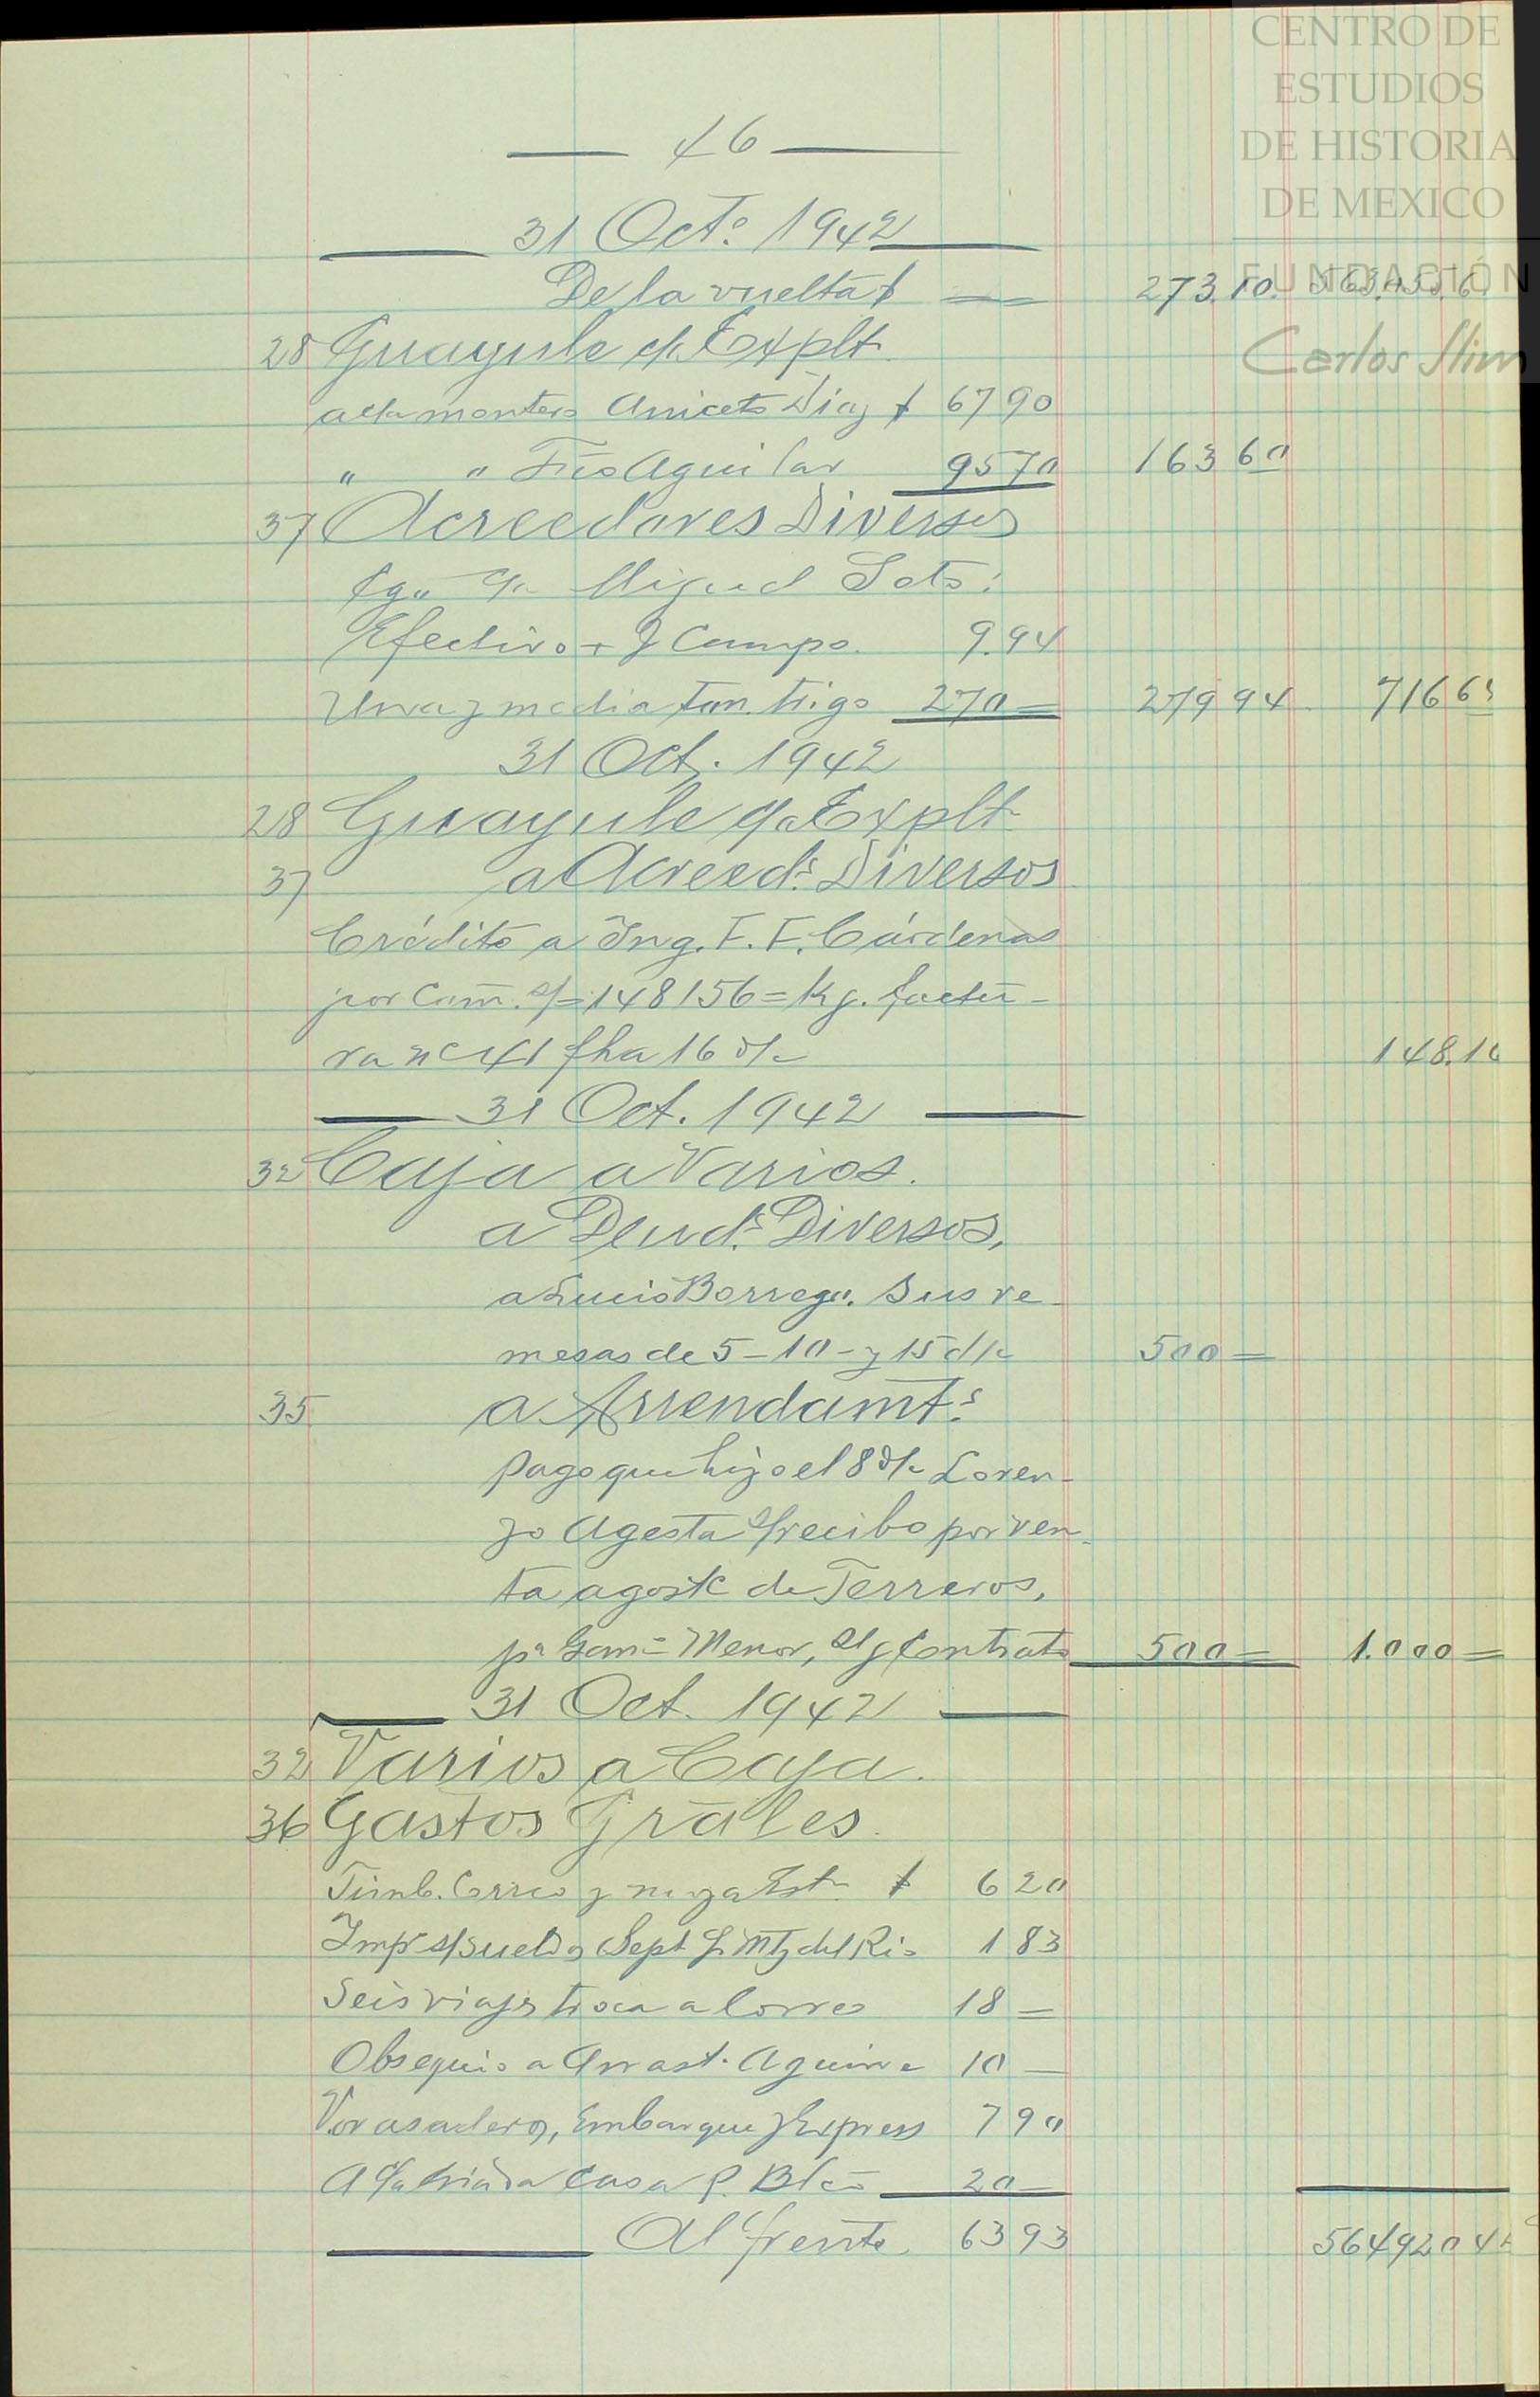 CENTRO DE
ESTUDIOS
DE HISTORIA
DE MEXICO
FUNDACIÓN
Carlos Slim
46
31 Oct.º 1942
De la vuelta $ 273.10
28 Guayule c/ Explt.
a la montero Aniceto Diaz $ 67 90
" " Fco Aguilar 95 70 163 60
37 Acreedores Diversos
Miguel Soto:
Efectivo 9.94
Una y media Ton. trigo 270 = 279 94 716 64
31 Oct. 1942
28 Guayule c/ Explt.
37 a Acreeds. Diversos
Crédito a Ing. F. F. Cárdenas
por Com. s/ = 148156 = Kg. factu-
ra nº 41 fha 16 148.16
31 Oct. 1942
32 Caja a Varios.
a Deuds. Diversos,
a Lucio Borrego. Sus re-
mesas de 5 - 10 - y 15 d/c 500 =
35 a Arrendamts.
Pago que hizo el 8 d/c Loren-
zo Agesta s/ recibo por ren-
ta agost. de Terrenos,
pª Gan= Menor, s/ Contrato 500 = 1.000 =
31 Oct. 1942
32 Varios a Caja.
36 Gastos Grales.
Timb. Correo y $ 6 20
Imp s/ sueldos Sept del Rio 1 83
Seis viajes troca a Correo 18 =
Obsequio a Aguirre 10 —
Embarque y Express 7 90
Casa P. Blco 20 —
Al frente 63 93 564920 4